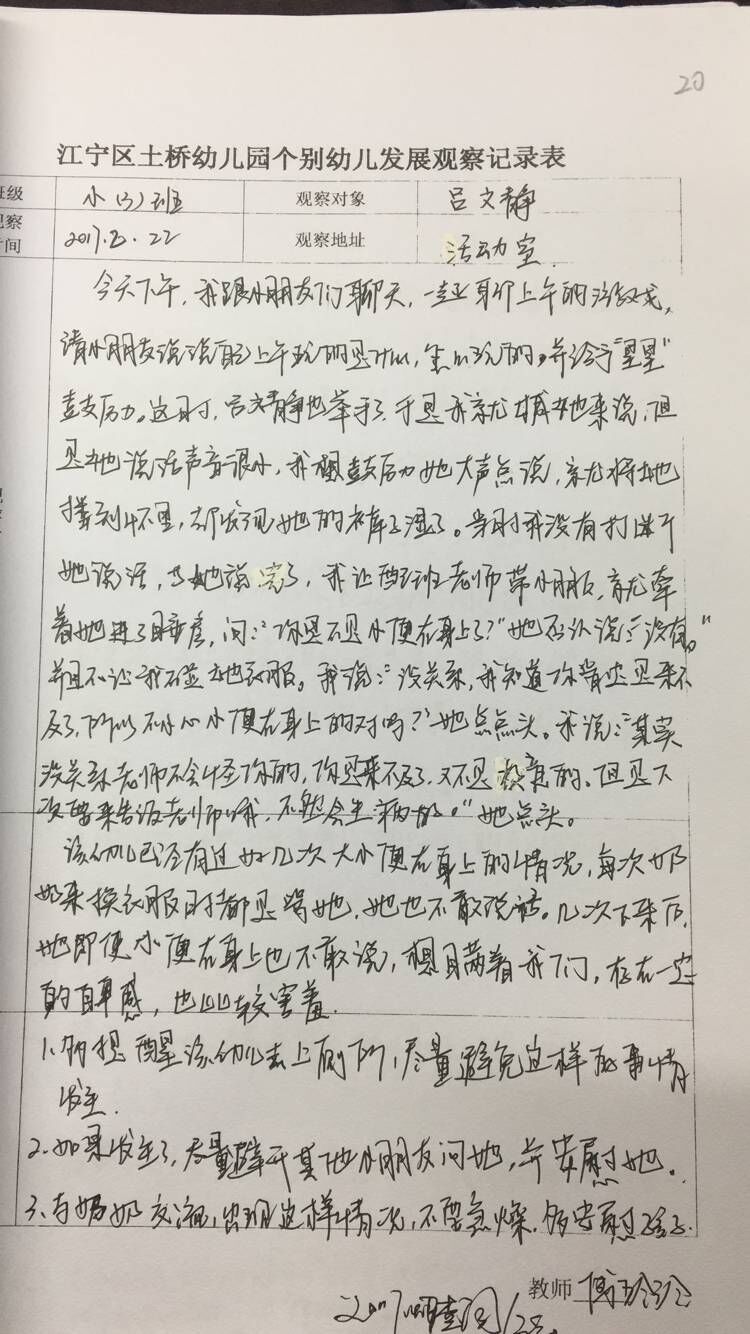 20
江宁区土桥幼儿园个别幼儿发展观察记录表
班级 小(3)班 观察对象 吕文静
观察时间 2017.2.22 观察地址 活动室
今天下午,我跟小朋友们聊天,一起聊聊上午的游戏,
请小朋友说说自己上午玩的是什么,怎么玩的,并给予“星星”
鼓励。这时,吕文静也举手了,于是我就请她来说,但
是她说话声音很小,我想鼓励她大声点说,就将她
搂到怀里,却发现她的裤子湿了。当时我没有打断
她说话,等她说完了,我让配班老师带小朋友,就牵
着她进了睡室,问:“你是不是小便在身上了?”她否认说:“没有。”
并且不让我碰她衣服。我说:“没关系,我知道你肯定是来不
及了,所以不小心小便在身上的对吗?”她点点头。我说:“其实
没关系老师不会怪你的,你是来不及了,又不是故意的。但是下
次要来告诉老师哦,不然会生病的。”她点头。
该幼儿已经有过好几次大小便在身上的情况,每次奶
奶来换衣服时都是骂她,她也不敢说话。几次下来后,
她即使小便在身上也不敢说,想瞒着我们,存在一定
的自卑感,也比较害羞.
1.多提醒该幼儿去上厕所,尽量避免这样的事情
发生.
2.如果发生了,尽量避开其他小朋友问她,并安慰她。
3.与奶奶交流,出现这样情况,不要急燥,多安慰孩子.
教师